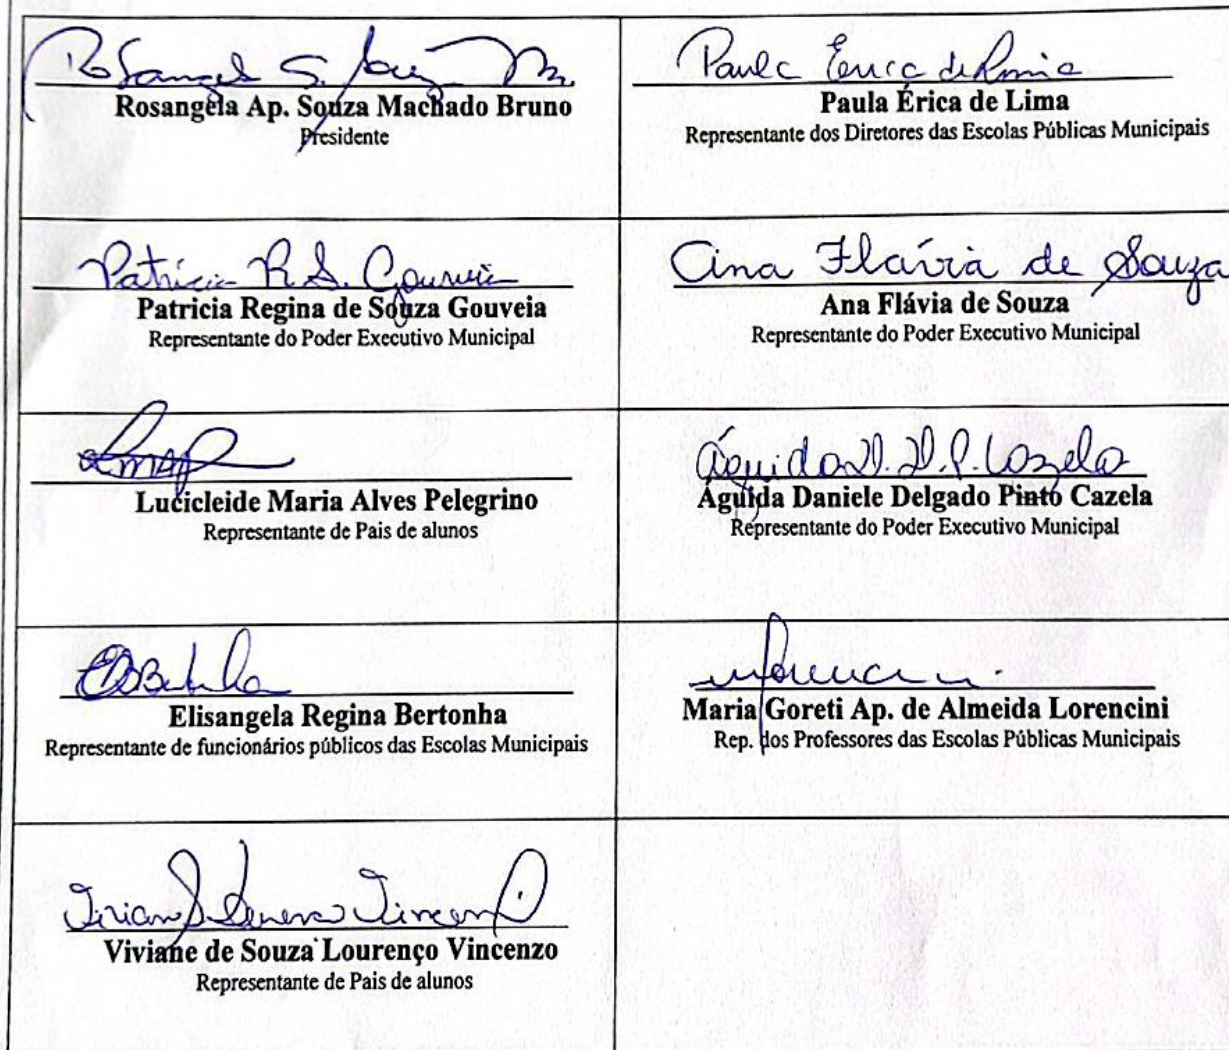 Rosangela S. Souza M.
Rosangela Ap. Souza Machado Bruno
Presidente
Paula Érica de Lima
Paula Érica de Lima
Representante dos Diretores das Escolas Públicas Municipais
Patrícia R. S. Gouveia
Patricia Regina de Souza Gouveia
Representante do Poder Executivo Municipal
Ana Flávia de Souza
Ana Flávia de Souza
Representante do Poder Executivo Municipal
Lucicleide Maria Alves Pelegrino
Representante de Pais de alunos
Águida D. D. P. Cazela
Águida Daniele Delgado Pinto Cazela
Representante do Poder Executivo Municipal
Elisangela Regina Bertonha
Representante de funcionários públicos das Escolas Municipais
Maria Goreti Ap. de Almeida Lorencini
Rep. dos Professores das Escolas Públicas Municipais
Viviane de Souza Lourenço Vincenzo
Representante de Pais de alunos